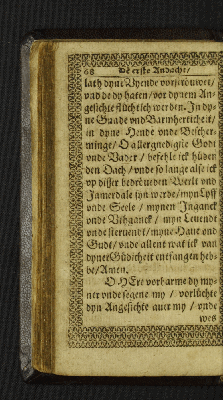 68 De erste Andacht/
lath dyne Vyende vorströuwet/
vnd de dy haten/ vor dynem An-
gesichte flüchtich werden. In dy-
ne Gnade vnd Barmherticheit/
in dyne Hende vnde Bescher-
minge/ O allergnedigste Godt
vnde Vader/ befehle ick hüden
den Dach/ vnde so lange alse ick
vp disser bedröueden Werlt vnd
Jamerdale syn werde/ myn Lyff
vnde Seele/ mynen Inganck
vnde Vthganck/ myn Leuende
vnde steruent/ myne Haue vnd
Gudt/ vnde allent wat ick van
dyner Güdicheit entfangen heb-
be/ Amen.
O HErr vorbarme dy my-
ner vnde segene my/ vorlüchte
dyn Angesichte auer my/ vnde
wes